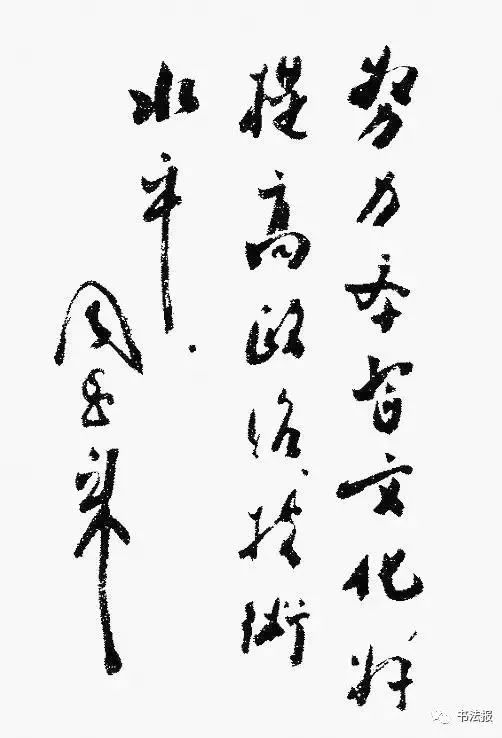 努力学習文化并
提高政治技術
水平.
周恩来
书法报